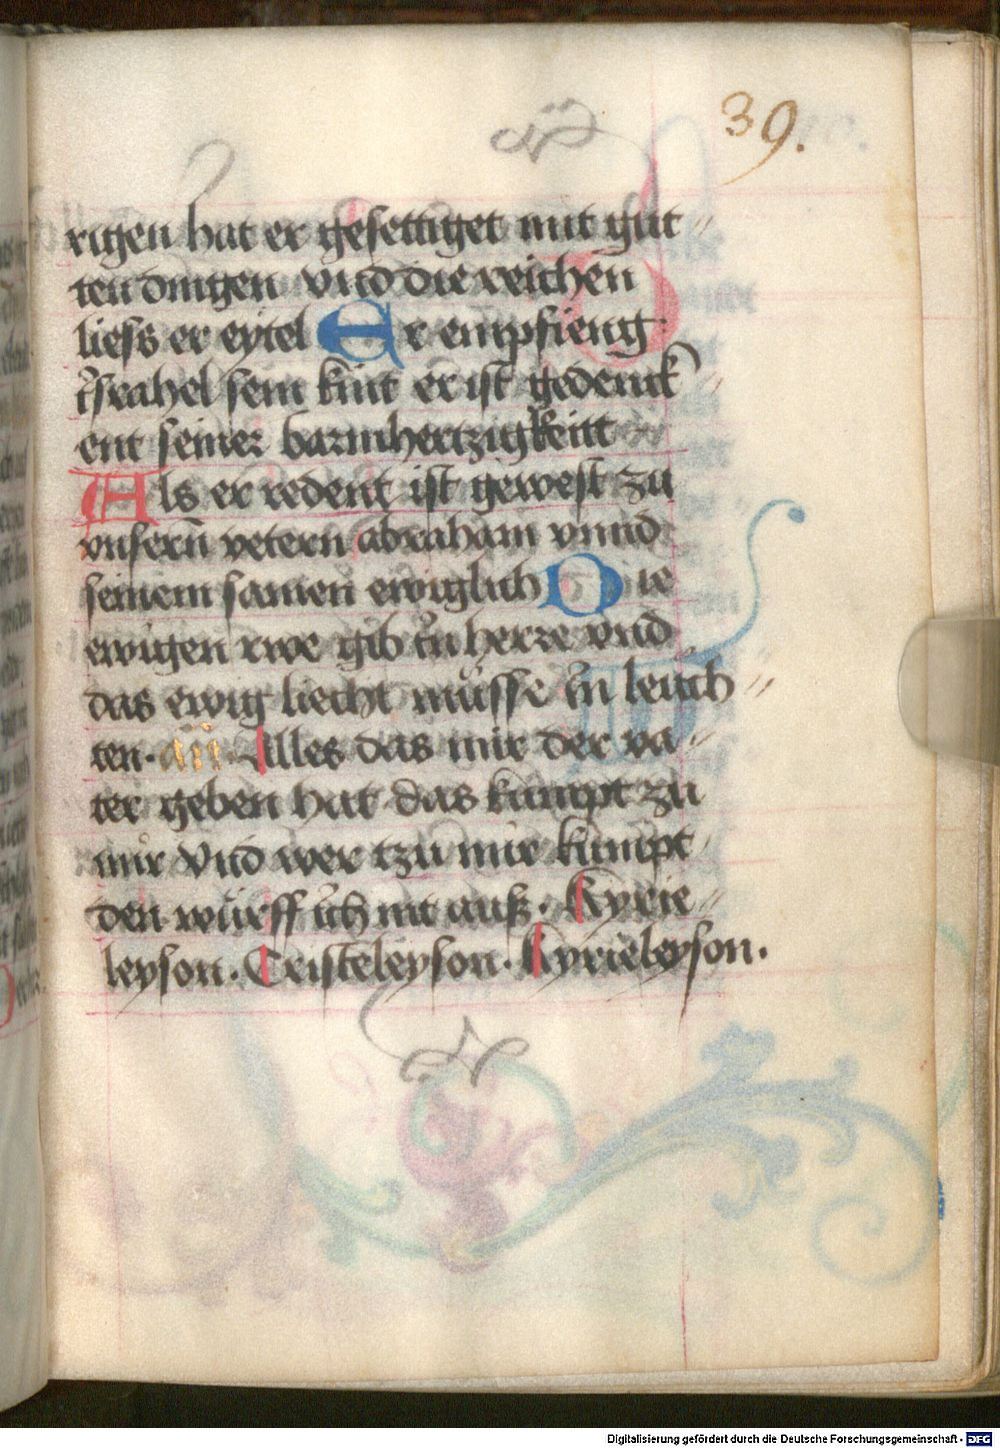 39.
rigen hat er gesettiget mit gut„
ten dingen vnd die reichen
liess er eytel Er empfieng
ysrahel sein kint er ist gedenck„
ent seiner barmhertzigkeitt
Als er redent ist gewest zu
vnsern vetern abraham vnnd
seinem samen ewiglich Die
ewigen rwe gib in herre vnd
das ewig liecht müsse in leuch„
ten. an̄ Alles das mir der va„
ter geben hat das kumpt zu
mir Vnd wer tzu mir kumpt„
den würff ich nit auß. Kyrie„
leyson. Cristeleyson. Kyrieleyson.
Digitalisierung gefördert durch die Deutsche Forschungsgemeinschaft - DFG